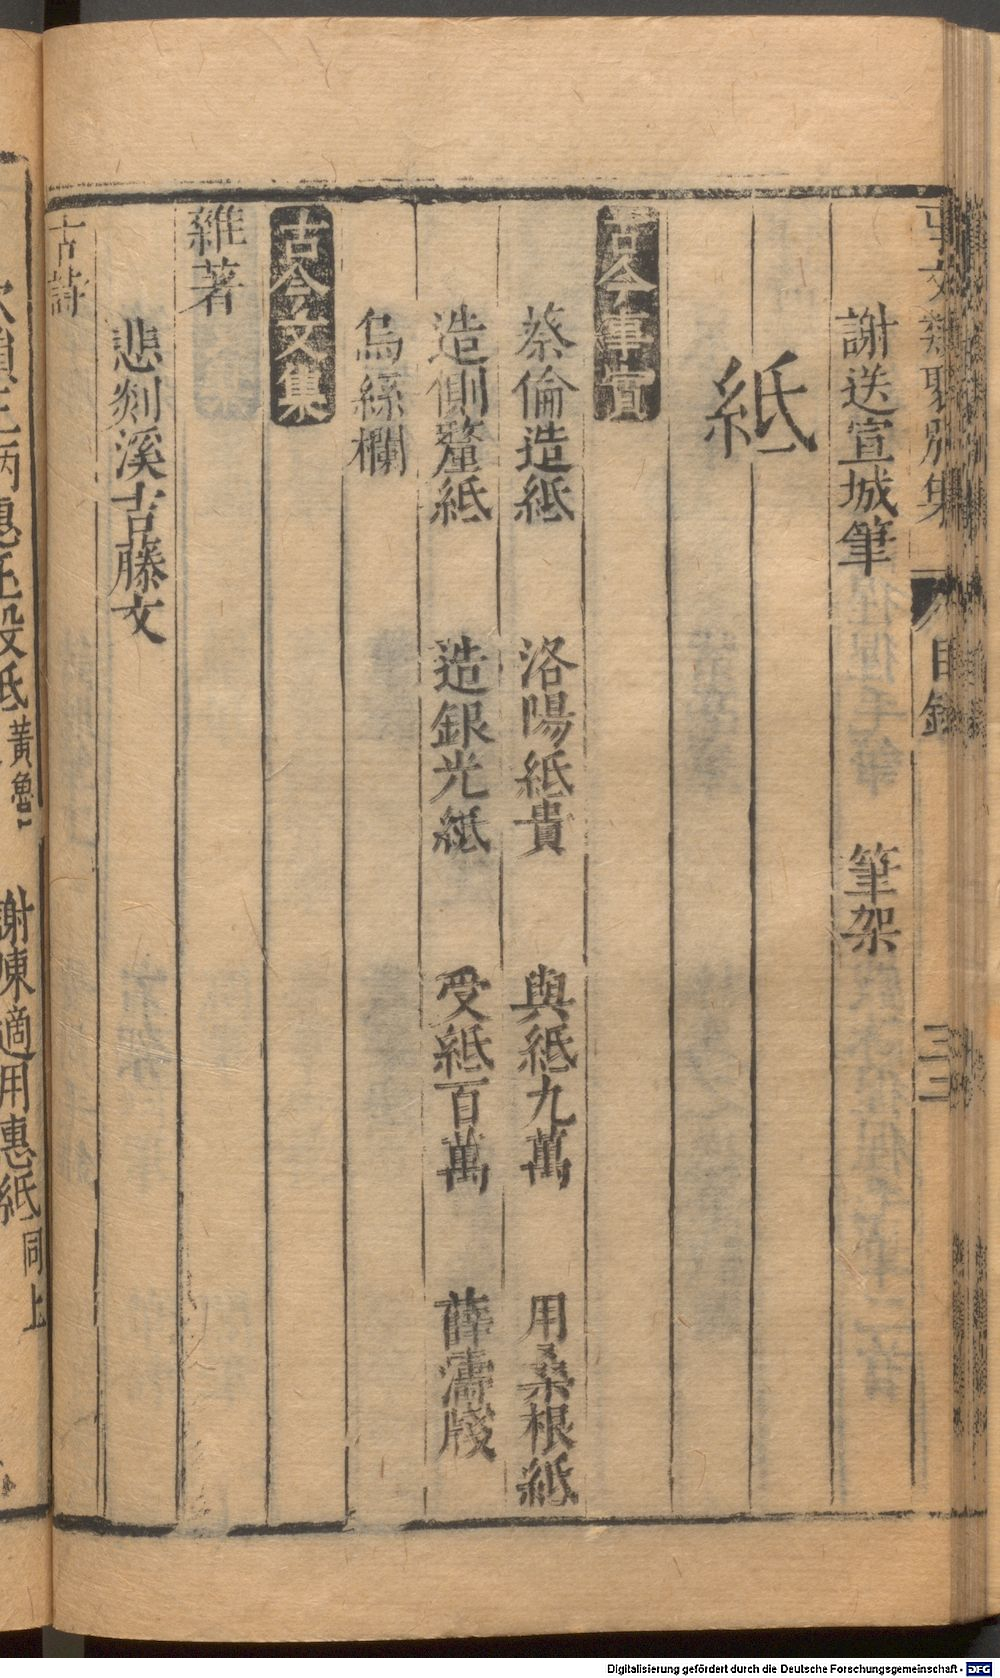 事文類聚別集
目錄
三二
謝送宣城筆　筆架
紙
古今事實
蔡倫造紙　洛陽紙貴　與紙九萬　用桑根紙
造側釐紙　造銀光紙　受紙百萬　薛濤牋
烏絲欄
古今文集
雜著
悲剡溪古藤文
古詩
惠玉版紙黃魯　謝陳適用惠紙同上
Digitalisierung gefördert durch die Deutsche Forschungsgemeinschaft - DFG